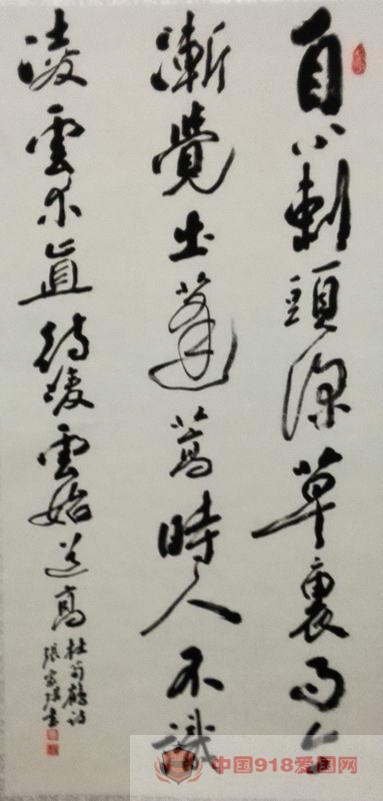 自小刺頭深草裏而今
漸覺出蓬蒿時人不識
淩雲木直待凌雲始道高
杜荀鶴詩
張家書
中国918爱国网